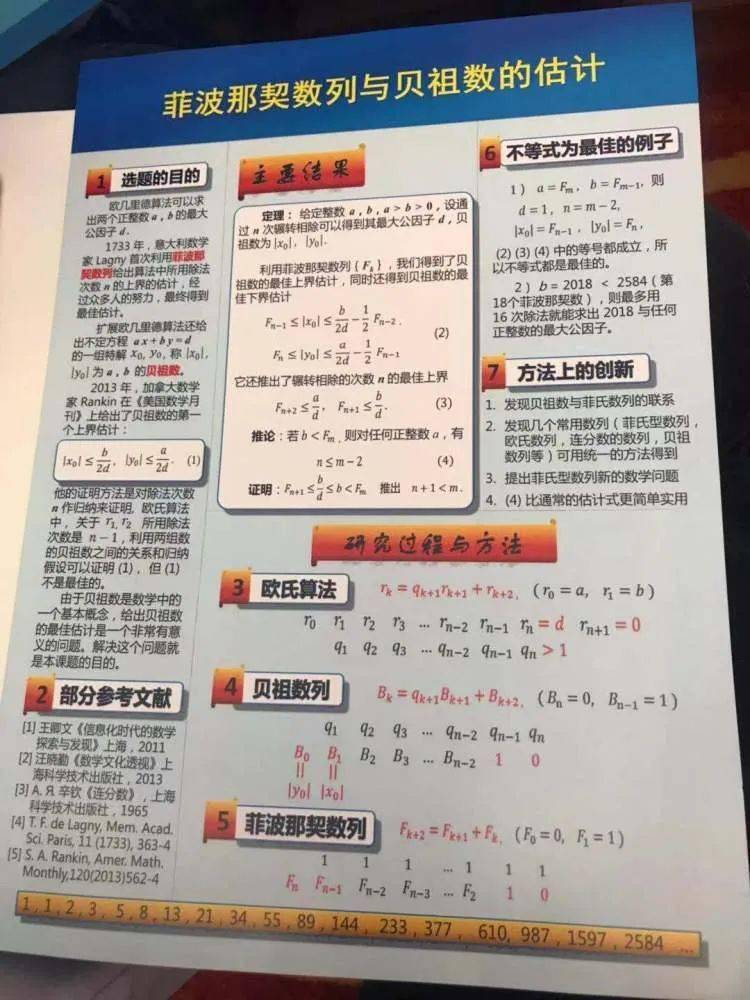 菲波那契数列与贝祖数的估计
1 选题的目的
欧几里德算法可以求
出两个正整数 a , b 的最大
公因子 d .
1733 年，意大利数学
家 Lagny 首次利用菲波那
契数列给出算法中所用除法
次数 n 的上界的估计，经
过众多人的努力，最终得到
最佳估计。
扩展欧几里德算法还给
出不定方程 ax + by = d
的一组特解 x₀, y₀, 称 |x₀|,
|y₀| 为 a , b 的贝祖数。
2013 年，加拿大数学
家 Rankin 在《美国数学月
刊》上给出了贝祖数的第一
个上界估计：
|x₀| ≤ b/2d , |y₀| ≤ a/2d . (1)
他的证明方法是对除法次数
n 作归纳来证明. 欧氏算法
中，关于 r₁, r₂ 所用除法
次数是 n − 1，利用两组数
的贝祖数之间的关系和归纳
假设可以证明 (1)，但 (1)
不是最佳的。
由于贝祖数是数学中的
一个基本概念，给出贝祖数
的最佳估计是一个非常有意
义的问题。解决这个问题就
是本课题的目的。
2 部分参考文献
[1] 王卿文《信息化时代的数学
探索与发现》上海，2011
[2] 汪晓勤《数学文化透视》上
海科学技术出版社，2013
[3] А. Я. 辛钦《连分数》，上海
科学技术出版社，1965
[4] T. F. de Lagny, Mem. Acad.
Sci. Paris, 11 (1733), 363-4
[5] S. A. Rankin, Amer. Math.
Monthly,120(2013)562-4
主要结果
定理：给定整数 a , b , a > b > 0，设通
过 n 次辗转相除可以得到其最大公因子 d，贝
祖数为 |x₀|，|y₀|.
利用菲波那契数列 {Fₖ}，我们得到了贝
祖数的最佳上界估计，同时还得到贝祖数的最
佳下界估计
Fₙ₋₁ ≤ |x₀| ≤ b/2d − 1/2 Fₙ₋₂ .
(2)
Fₙ ≤ |y₀| ≤ a/2d − 1/2 Fₙ₋₁
它还推出了辗转相除的次数 n 的最佳上界
Fₙ₊₂ ≤ a/d , Fₙ₊₁ ≤ b/d . (3)
推论：若 b < Fₘ , 则对任何正整数 a，有
n ≤ m − 2 (4)
证明：Fₙ₊₁ ≤ b/d ≤ b < Fₘ 推出 n + 1 < m .
6 不等式为最佳的例子
1） a = Fₘ , b = Fₘ₋₁, 则
d = 1, n = m − 2,
|x₀| = Fₙ₋₁ , |y₀| = Fₙ ,
(2) (3) (4) 中的等号都成立，所
以不等式都是最佳的。
2）b = 2018 < 2584（第
18个菲波那契数），则最多用
16 次除法就能求出 2018 与任何
正整数的最大公因子。
7 方法上的创新
1. 发现贝祖数与菲氏数列的联系
2. 发现几个常用数列（菲氏型数列，
欧氏数列，连分数的数列，贝祖
数列等）可用统一的方法得到
3. 提出菲氏型数列新的数学问题
4. (4) 比通常的估计式更简单实用
研究过程与方法
3 欧氏算法 rₖ = qₖ₊₁rₖ₊₁ + rₖ₊₂, ( r₀ = a, r₁ = b )
r₀ r₁ r₂ r₃ ... rₙ₋₂ rₙ₋₁ rₙ = d rₙ₊₁ = 0
q₁ q₂ q₃ ... qₙ₋₂ qₙ₋₁ qₙ > 1
4 贝祖数列 Bₖ = qₖ₊₁Bₖ₊₁ + Bₖ₊₂, ( Bₙ = 0, Bₙ₋₁ = 1 )
q₁ q₂ q₃ ... qₙ₋₂ qₙ₋₁ qₙ
B₀ B₁ B₂ B₃ ... Bₙ₋₂ 1 0
|| ||
|y₀| |x₀|
5 菲波那契数列 Fₖ₊₂ = Fₖ₊₁ + Fₖ, ( F₀ = 0, F₁ = 1 )
1 1 1 ... 1 1 1
Fₙ Fₙ₋₁ Fₙ₋₂ Fₙ₋₃ ... F₂ 1 0
1 , 1 , 2 , 3 , 5 , 8 , 13 , 21 , 34 , 55 , 89 , 144 , 233 , 377 , 610, 987 , 1597 , 2584 ...